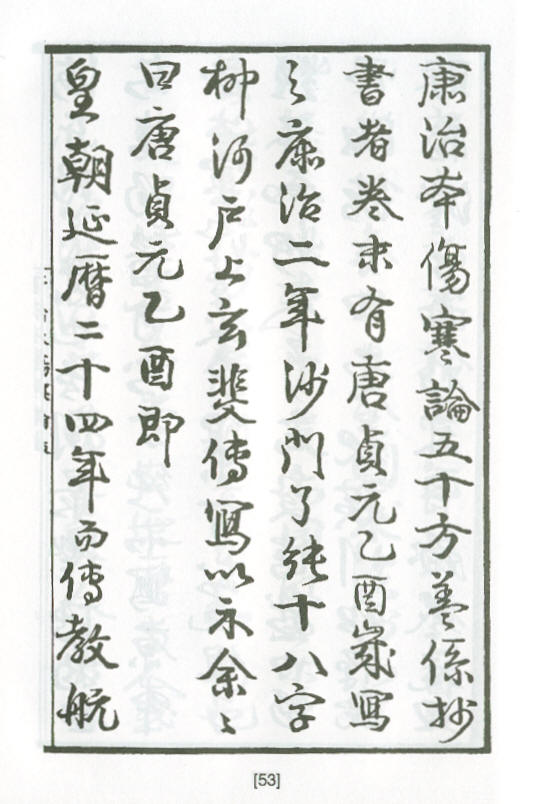 康治本傷寒論五十方蓋係抄
書者卷末有唐貞元乙酉歲寫
之康治二年沙門了純十八字
柳河戶上玄斐傳寫以示余〻
曰唐貞元乙酉即
皇朝延曆二十四年而傳教航
[53]